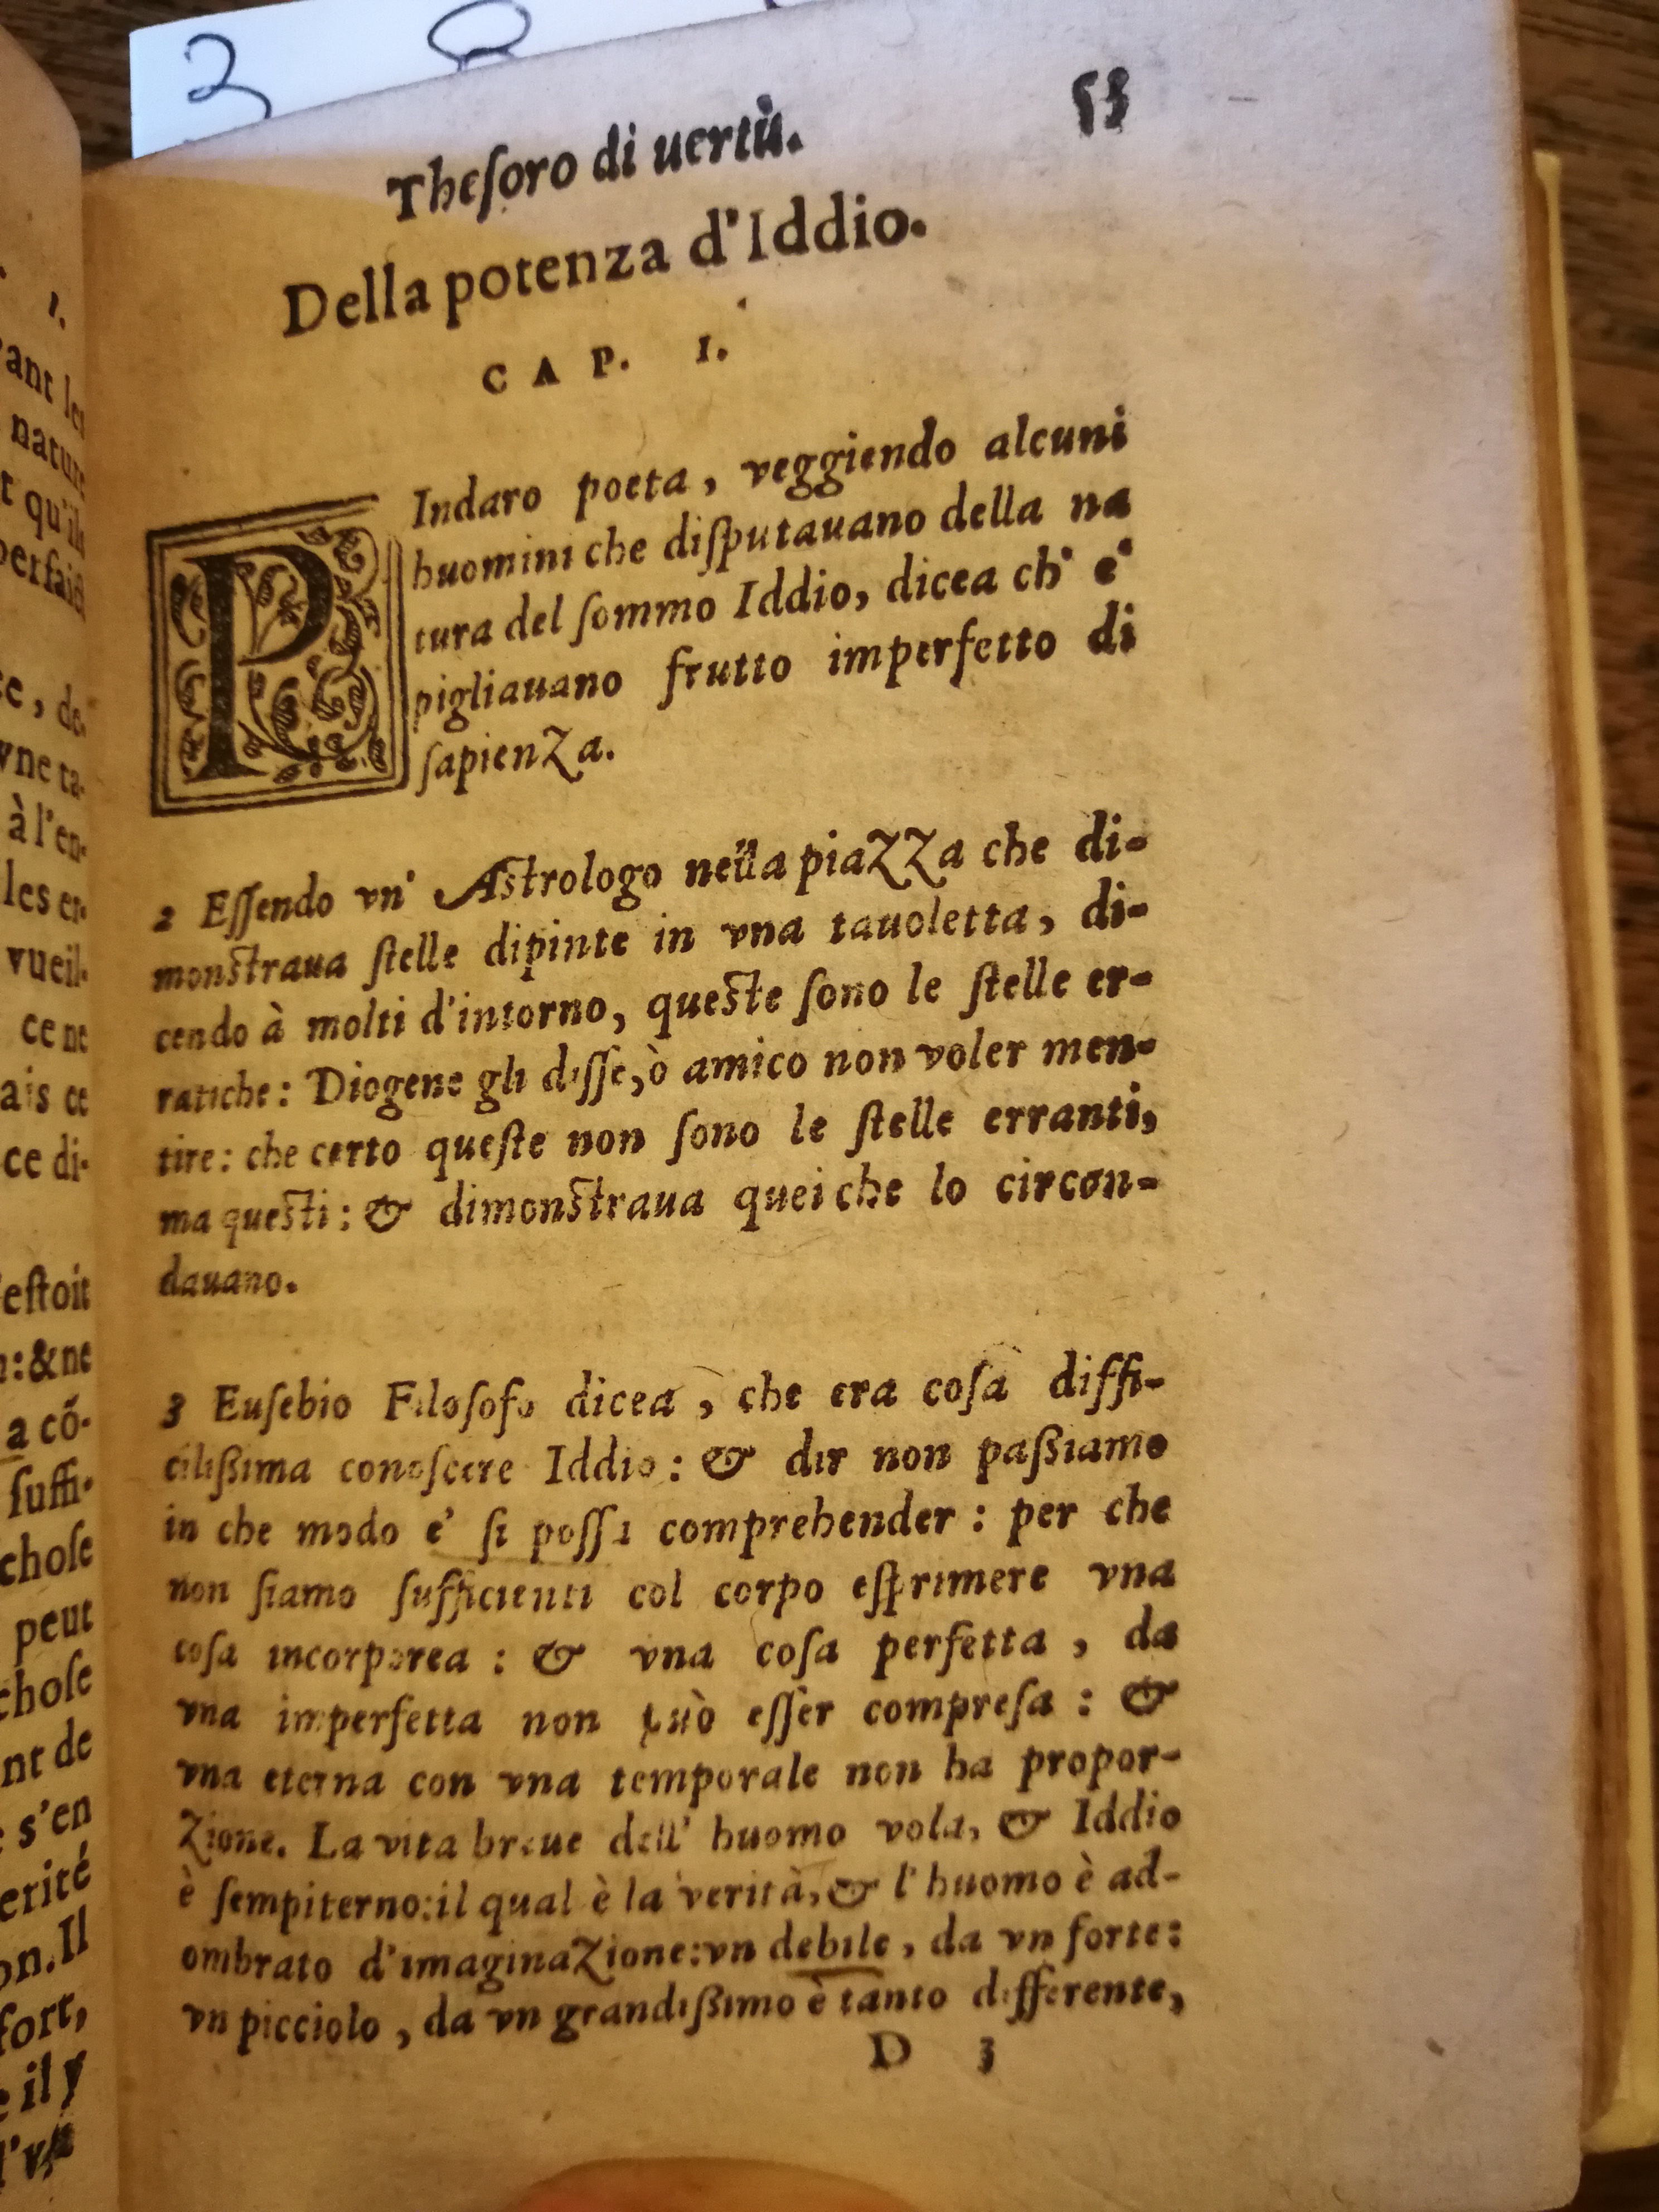 3
53
Theſoro di uertù.
Della potenza d'Iddio.
CAP. I.
PIndaro poeta, veggiendo alcuni
huomini che diſputauano della na
tura del ſommo Iddio, dicea ch' e'
pigliauano frutto imperfetto di
ſapienza.
2 Eſſendo vn' Astrologo nella piazza che di-
monstraua ſtelle dipinte in vna tauoletta, di-
cendo à molti d'intorno, queste ſono le ſtelle er-
ratiche: Diogene gli diſſe, ò amico non voler men-
tire: che certo queſte non ſono le ſtelle erranti,
ma questi: & dimonstraua quei che lo circon-
dauano.
3 Euſebio Filoſofo dicea, che era coſa diffi-
cilißima conoſcere Iddio: & dir non paßiamo
in che modo e' ſi poſſa comprehender: per che
non ſiamo ſufficienti col corpo eſprimere vna
coſa incorporea: & vna coſa perfetta, da
vna imperfetta non può eſſer compreſa: &
vna eterna con vna temporale non ha propor-
zione. La vita breue dell' huomo vola, & Iddio
è ſempiterno: il qual è la verità, & l'huomo è ad-
ombrato d'imaginazione: vn debile, da vn forte:
vn picciolo, da vn grandißimo è tanto differente,
D 3
ant les
nature
t qu'ils
perfaict
e, de
vne ta-
à l'en-
les er-
vueil-
ce ne
ais ce
ce di-
eſtoit
:&ne
a có-
ſuffi-
choſe
peut
choſe
nt de
s'en
erité
on. Il
fort,
il y